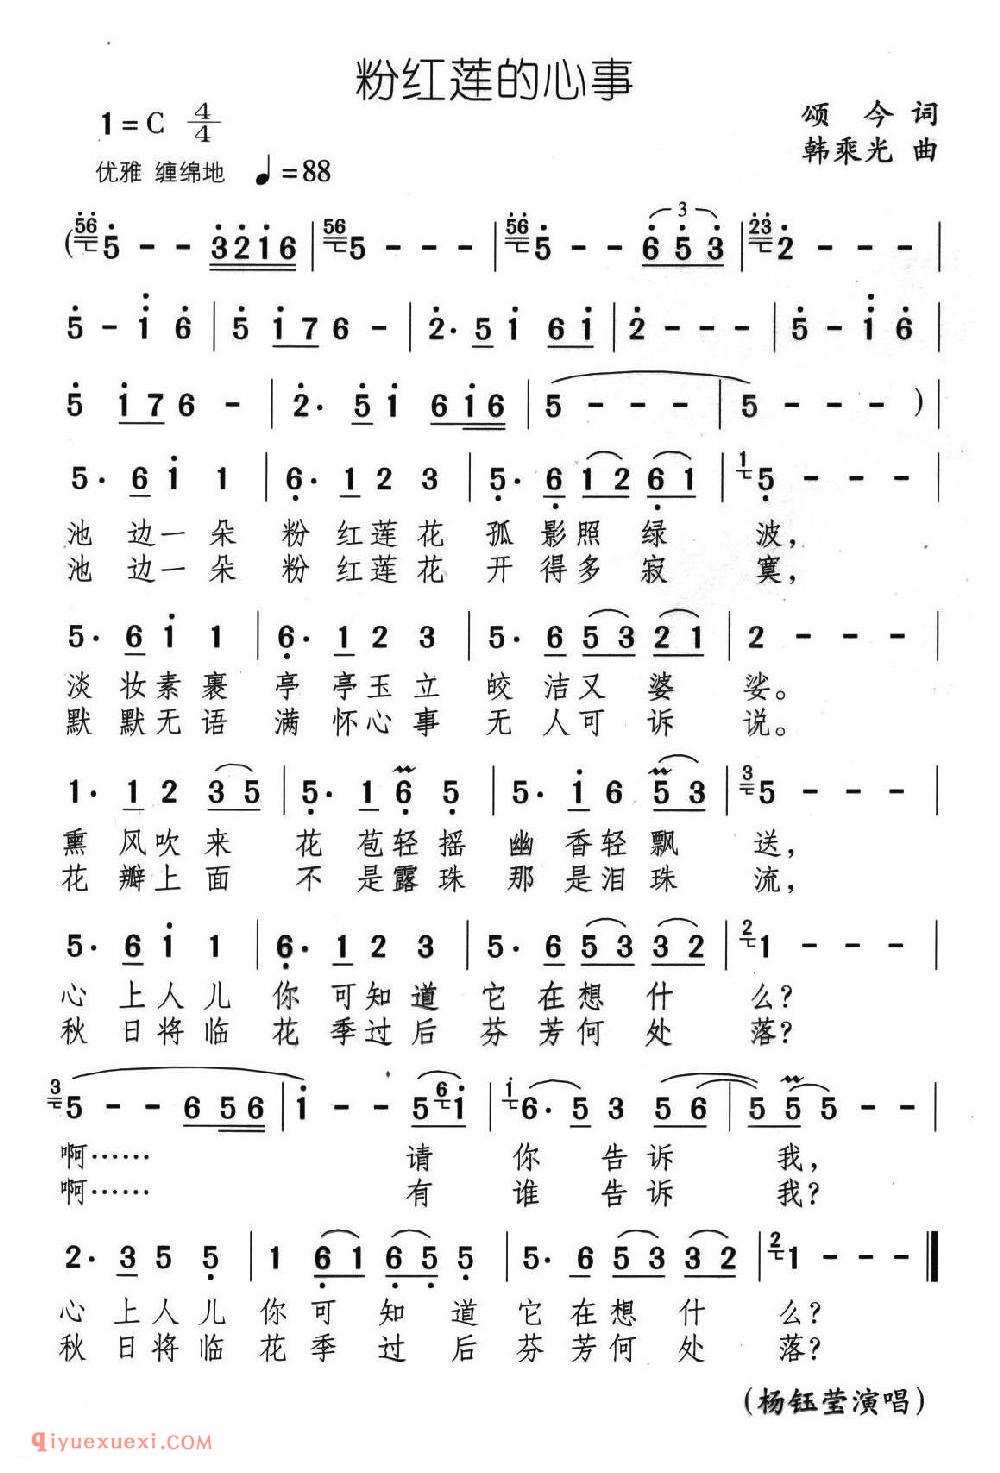 粉红莲的心事
1=C 4/4
颂 今 词
韩乘光 曲
优雅 缠绵地 ♩=88
(56 5 - - 3216 | 56 5 - - - | 56 5 - - 3 653 | 23 2 - - - |
5 - 1 6 | 5 17 6 - | 2. 5 1 61 | 2 - - - | 5 - 1 6 |
5 17 6 - | 2. 5 1 616 | 5 - - - | 5 - - - ) |
5. 6 1 1 | 6. 1 2 3 | 5. 6 12 61 | 1 5 - - - |
池 边一 朵 粉 红莲 花 孤 影照 绿 波，
池 边一 朵 粉 红莲 花 开 得多 寂 寞，
5. 6 1 1 | 6. 1 2 3 | 5. 6 53 21 | 2 - - - |
淡 妆素 裹 亭 亭玉 立 皎 洁又 婆 娑。
默 默无 语 满 怀心 事 无 人可 诉 说。
1. 1 2 35 | 5. 1 6 5 | 5. 1 6 53 | 3 5 - - - |
熏 风吹 来 花 苞轻 摇 幽 香轻 飘 送，
花 瓣上 面 不 是露 珠 那 是泪 珠 流，
5. 6 1 1 | 6. 1 2 3 | 5. 6 53 32 | 2 1 - - - |
心 上人 儿 你 可知 道 它 在想 什 么？
秋 日将 临 花 季过 后 芬 芳何 处 落？
3 5 - - 656 | 1 - - 5 6 1 | 1 6. 5 3 56 | 55 5 - - |
啊…… 请 你 告 诉 我，
啊…… 有 谁 告 诉 我？
2. 3 5 5 | 1 61 65 5 | 5. 6 53 32 | 2 1 - - - ‖
心 上人 儿 你 可 知 道 它 在想 什 么？
秋 日将 临 花 季 过 后 芬 芳何 处 落？
(杨钰莹演唱)
qiyuexuexi.COM